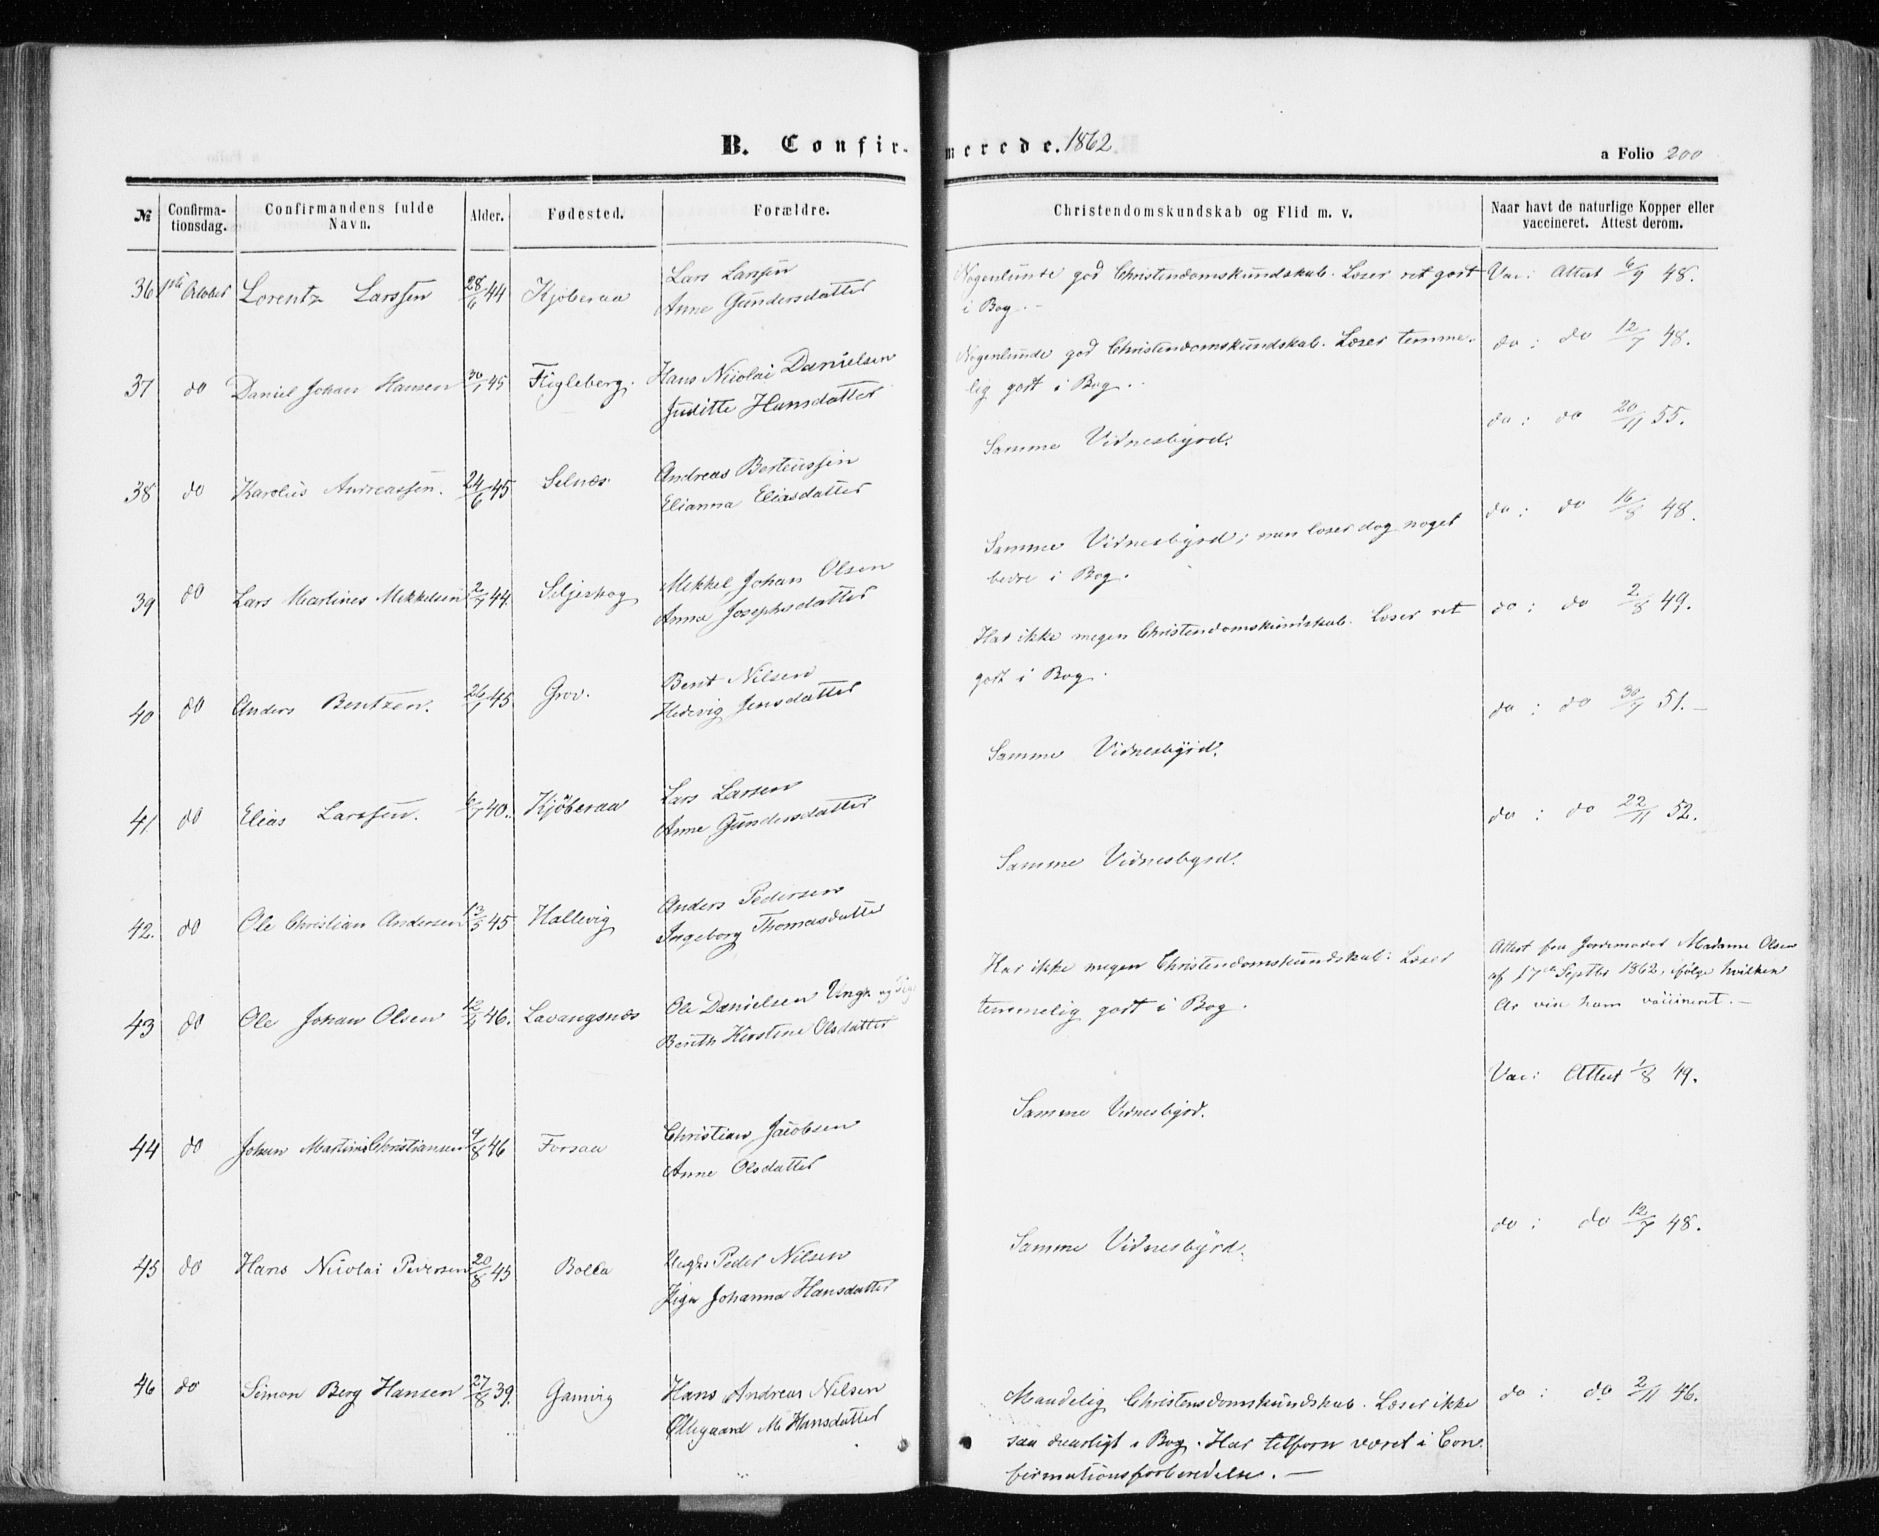 B. Confirmerede. 1862
a Folio 200
№ Confirma-tionsdag. Confirmandens fulde Navn. Alder. Fødested. Forældre. Christendomskundskab og Flid m. v. Naar havt de naturlige Kopper eller vaccineret. Attest derom.
36 October Lorentz Larssen 28/6 44 Kjöberaa Lars Larssen
Anne Gundersdatter
Nogenlunde god Christendomskundskab. Læser ret godt
i Bog. -
Vac: Attest 6/9 48.
37 do Daniel Johan Hansen 30/1 45 Figleberg. Hans Nicolai Danielsen
Juditte Hansdatter
Nogenlunde god Christendomskundskab. Læser temme-
lig godt i Bog.
do: do 12/7 48.
38 do Karolus Andreassen. 24/6 45 Selnæs Andreas Berteussen
Elianna Eliasdatter
Samme Vidnesbyrd.
do: do 20/11 55.
39 do Lars Martines Mikkelsen 2/7 44. Seljeskog Mikkel Johan Olsen
Anna Josephsdatter
Samme Vidnesbyrd; men læser dog noget
bedre i Bog.
do: do 16/8 48.
40 do Anders Bentzen. 26/1 45 Grov. Bent Nilsen
Hedevig Jensdatter
Har ikke megen Christendomskundskab. Læser ret
godt i Bog.
do: do 2/8 49.
41 do Elias Larssen. 6/7 40. Kjöberaa Lars Larsen
Anne Gundersdatter
Samme Vidnesbyrd.
do: do 30/7 51. -
42. do Ole Christian Andersen 13/5 45 Hallevig Anders Pedersen
Ingeborg Thomasdatter
Samme Vidnesbyrd.
do: do 22/11 52.
43 do Ole Johan Olsen 12/4 46. Lavangsnæs Ole Danielsen Ungk. og Pige
Berith Kirstine Olsdatter
Har ikke megen Christendomskundskab. Læser
temmelig godt i Bog.
Attest fra Jordemoder Madame Olsen
af 17de Septbr 1862, ifölge hvilken
har vaccineret. -
44 do Johan Martin Christiansen 9/8 46 Forsaa Christian Jacobsen
Anne Olsdatter
Samme Vidnesbyrd.
Vac: Attest 1/8 49.
45 do Hans Nicolai Pedersen 20/8 45 Bolla Ungk. Peder Nilsen
Pige Johanna Hansdatter
Samme Vidnesbyrd.
do: do 12/7 48.
46 do Simon Berg Hansen 27/8 39. Gamvig Hans Andreas Nilsen
Ollegaard M. Hansdatter
Maadelig Christendomskundskab. Læser ikke
saa daarligt i Bog. Har tilforn været i Con-
firmationsforberedelse. -
do: do 2/11 46.